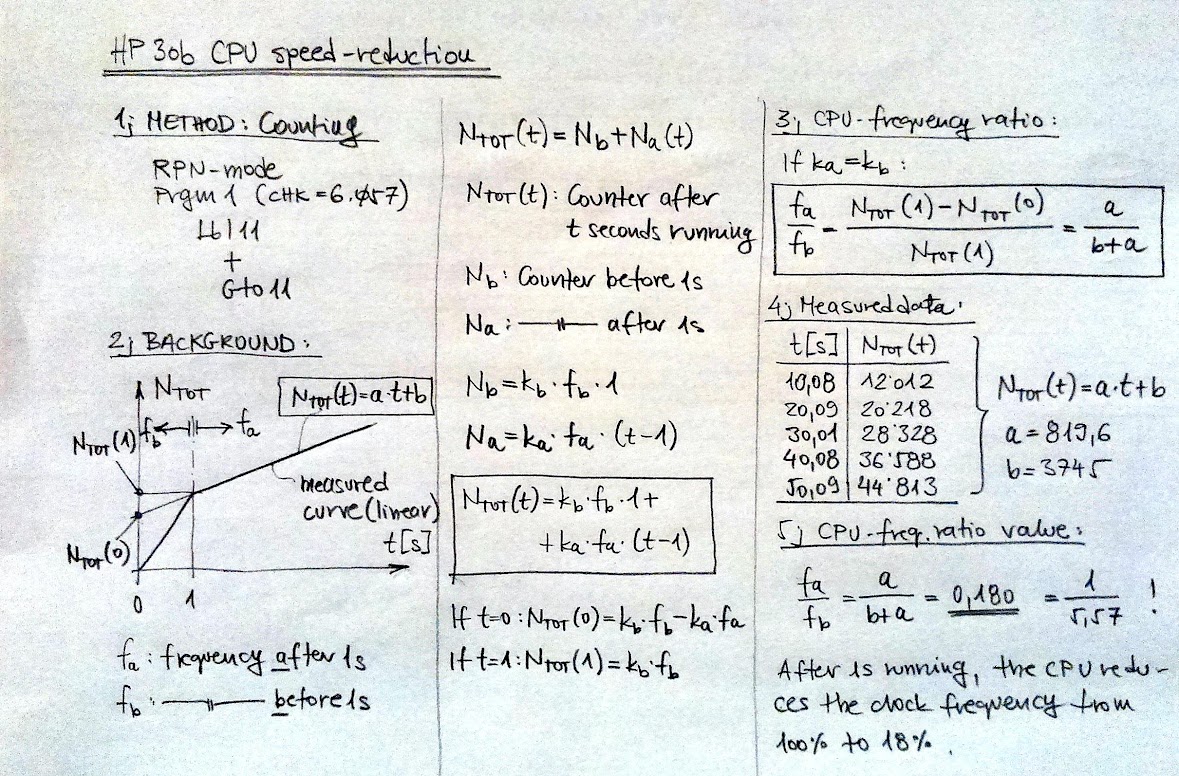 HP 30b CPU speed-reduction
1; METHOD: Counting
RPN-mode
Prgm 1 (CHK = 6.057)
Lbl 11
+
Gto 11
2; BACKGROUND:
N_TOT
N_TOT(t)=a·t+b
f_b f_a
N_TOT(1)
measured
curve (linear)
t[s]
N_TOT(0)
0 1
f_a : frequency after 1s
f_b : —"— before 1s
N_TOT(t) = N_b + N_a(t)
N_TOT(t): Counter after
t seconds running
N_b: Counter before 1s
N_a: —"— after 1s
N_b = k_b · f_b · 1
N_a = k_a · f_a · (t-1)
N_TOT(t) = k_b · f_b · 1 +
+ k_a · f_a · (t-1)
If t=0: N_TOT(0) = k_b · f_b - k_a · f_a
If t=1: N_TOT(1) = k_b · f_b
3; CPU-frequency ratio:
If k_a = k_b :
f_a/f_b = (N_TOT(1) - N_TOT(0))/N_TOT(1) = a/(b+a)
4; Measured data:
t[s] N_TOT(t)
10,08 12'012
20,09 20'218
30,01 28'328
40,08 36'588
50,09 44'813
N_TOT(t) = a·t+b
a = 819,6
b = 3745
5; CPU-freq. ratio value:
f_a/f_b = a/(b+a) = 0,180 = 1/5,57 !
After 1s running, the CPU redu-
ces the clock frequency from
100% to 18%.